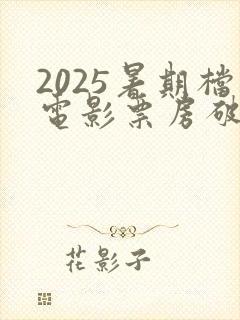 2025暑期檔
電影票房破
花影子